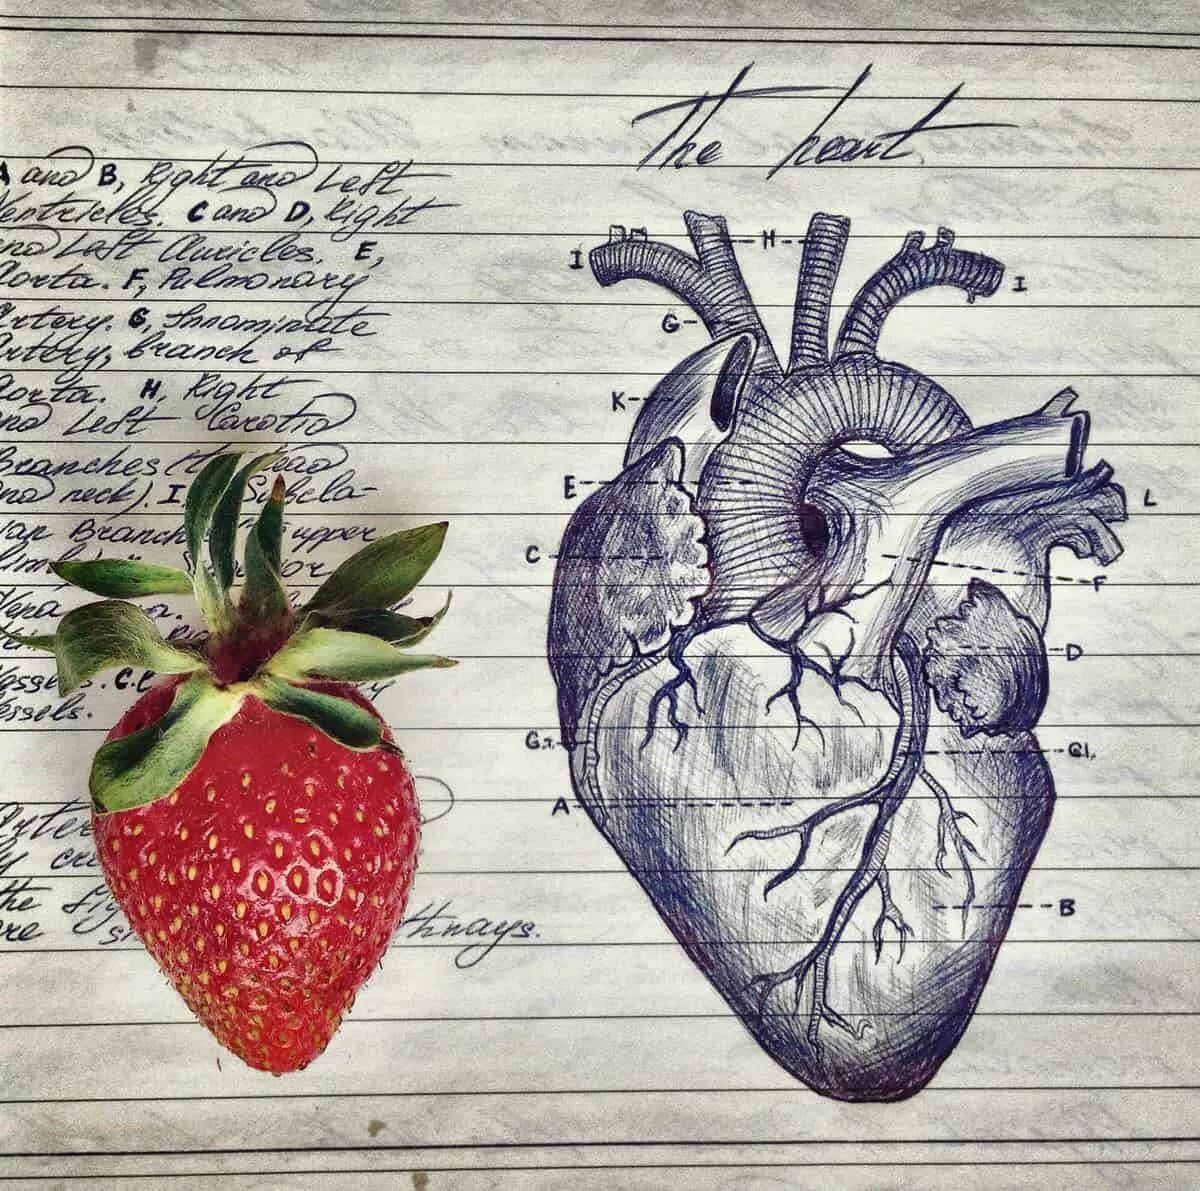 The heart
A and B, Right and Left
Ventricles. C and D, Right
and Left Auricles. E,
Aorta. F, Pulmonary
Artery. G, Innominate
Artery, branch of
Aorta. H, Right
and Left Carotid
Branches head
and neck). I Subcla-
var Branch upper
Vena
Vessels. C.
essels.
the
thways.
I
H
I
G
K
E
L
C
F
D
G.r.
Gl.
A
B